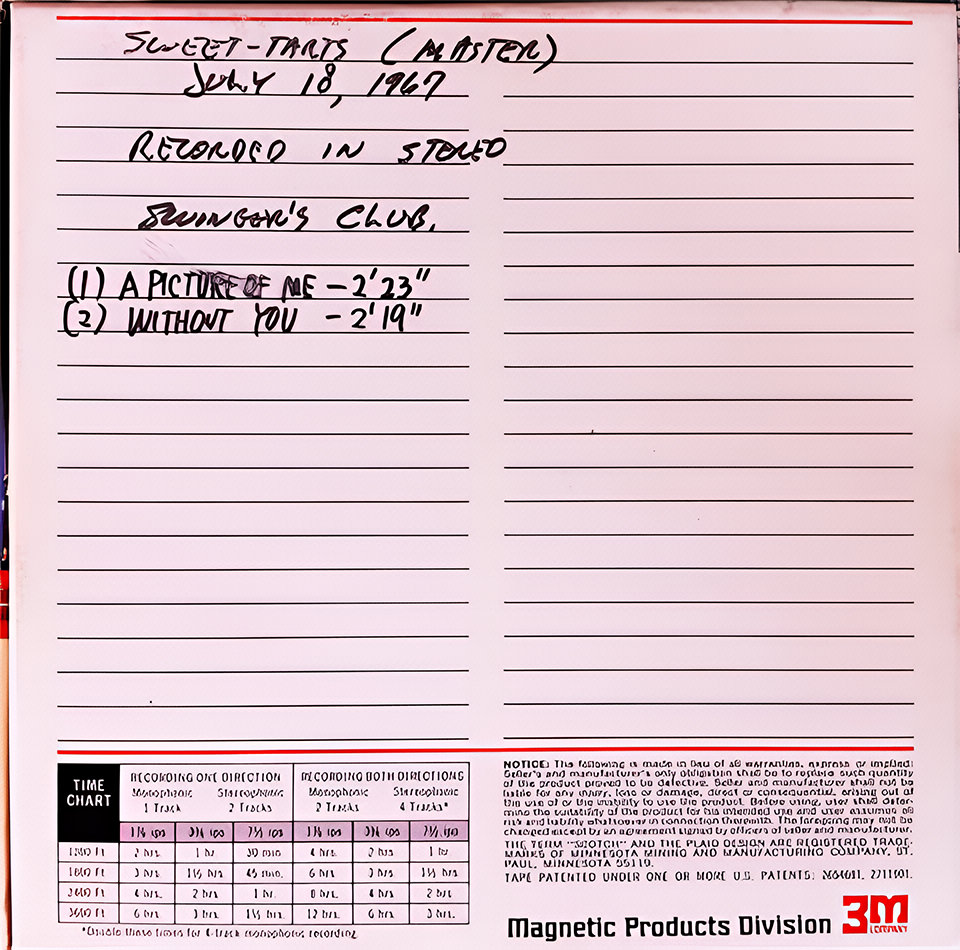 SWEET-TARTS (MASTER)
JULY 18, 1967
RECORDED IN STEREO
SWINGER'S CLUB.
(1) A PICTURE OF ME - 2'23"
(2) WITHOUT YOU - 2'19"
TIME CHART
RECORDING ONE DIRECTION
RECORDING BOTH DIRECTIONS
Monophonic 1 Track
Stereophonic 2 Tracks
Monophonic 2 Tracks
Stereophonic 4 Tracks*
1⅞ ips 3¾ ips 7½ ips 1⅞ ips 3¾ ips 7½ ips
2 hrs. 1 hr. 30 min. 4 hrs. 2 hrs. 1 hr.
1800 ft 3 hrs. 1½ hrs. 45 min. 6 hrs. 3 hrs. 1½ hrs.
4 hrs. 2 hrs. 1 hr. 8 hrs. 4 hrs. 2 hrs.
3600 ft 6 hrs. 3 hrs. 1½ hrs. 12 hrs. 6 hrs. 3 hrs.
*Double these times for 4-track monophonic recording.
NOTICE: The following is made in lieu of all warranties, express or implied:
Seller's and manufacturer's only obligation shall be to replace such quantity
of the product proved to be defective. Seller and manufacturer shall not be
liable for any injury, loss or damage, direct or consequential, arising out of
the use of or the inability to use the product. Before using, user shall deter-
mine the suitability of the product for his intended use and user assumes all
risk and liability whatsoever in connection therewith. The foregoing may not be
changed except by an agreement signed by officers of seller and manufacturer.
THE TERM "SCOTCH" AND THE PLAID DESIGN ARE REGISTERED TRADE-
MARKS OF MINNESOTA MINING AND MANUFACTURING COMPANY, ST.
PAUL, MINNESOTA 55119.
TAPE PATENTED UNDER ONE OR MORE U.S. PATENTS:
Magnetic Products Division 3M COMPANY